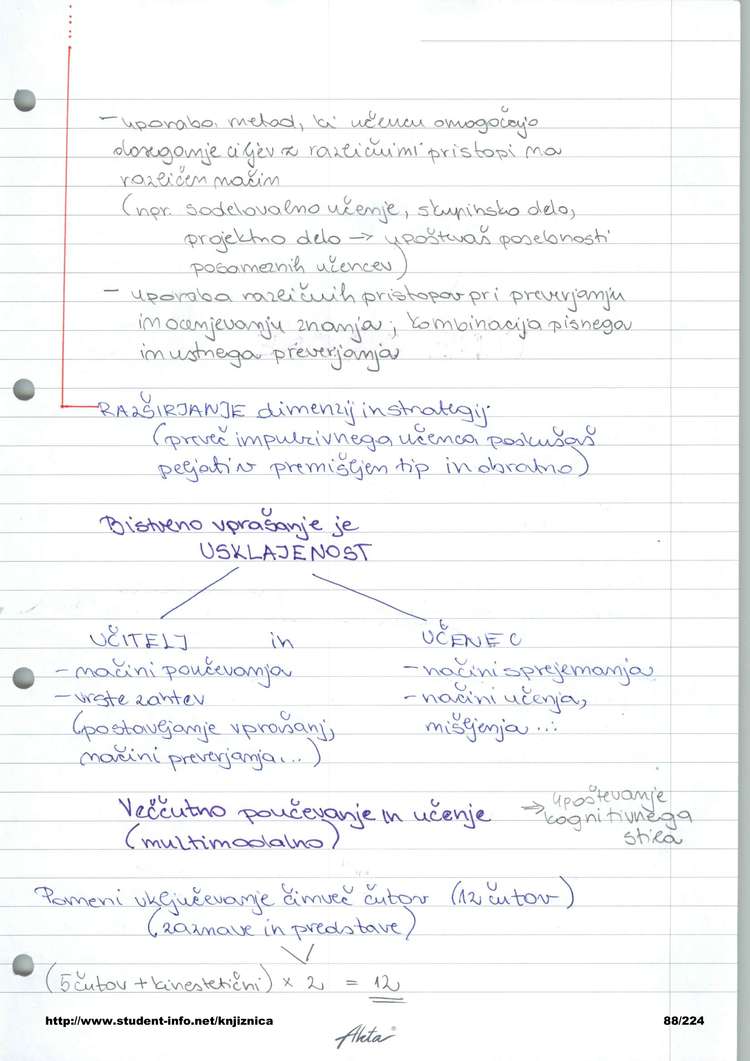 - uporaba metod, ki učencu omogočajo
doseganje ciljev z različnimi pristopi na
različen način
(npr. sodelovalno učenje, skupinsko delo,
projektno delo → upoštevaš posebnosti
posameznih učencev)
- uporaba različnih pristopov pri preverjanju
in ocenjevanju znanja; kombinacija pisnega
in ustnega preverjanja
RAZŠIRJANJE dimenzij in strategij
(preveč impulzivnega učenca poskušaš
peljati v premišljen tip in obratno)
Bistveno vprašanje je
USKLAJENOST
UČITELJ in UČENEC
- načini poučevanja - načini sprejemanja
- vrste zahtev - načini učenja,
(postavljanje vprašanj, mišljenja ...
načini preverjanja...)
Veččutno poučevanje in učenje ⇒ upoštevanje
(multimodalno) kognitivnega
stila
Pomeni vključevanje čimveč čutov (12 čutov)
(zaznave in predstave)
(5 čutov + kinestetični) × 2 = 12
http://www.student-info.net/knjiznica 88/224
Akta